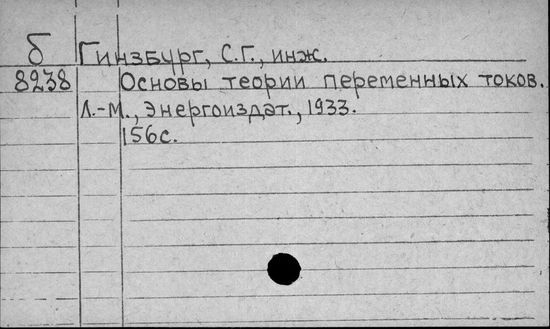 б Гинзбург, С.Г., инж.
8238 Основы теории переменных токов.
Л.-М., Энергоиздат., 1933.
156с.